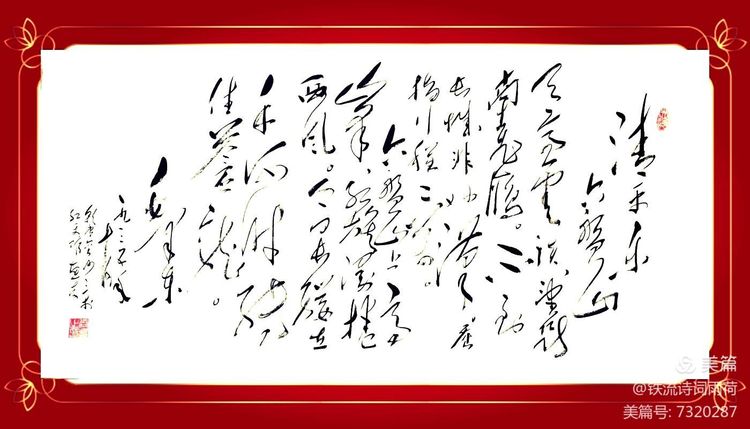 清平乐
六盘山
天高云淡望断
南飞雁。不到
长城非好汉屈
指行程二万。
六盘山上高
峰红旗漫捲
西风。今日长缨在
手何时缚
住苍龙。
毛泽东
一九三五年
十月
美篇
@铁流诗词雨荷
美篇号: 7320287